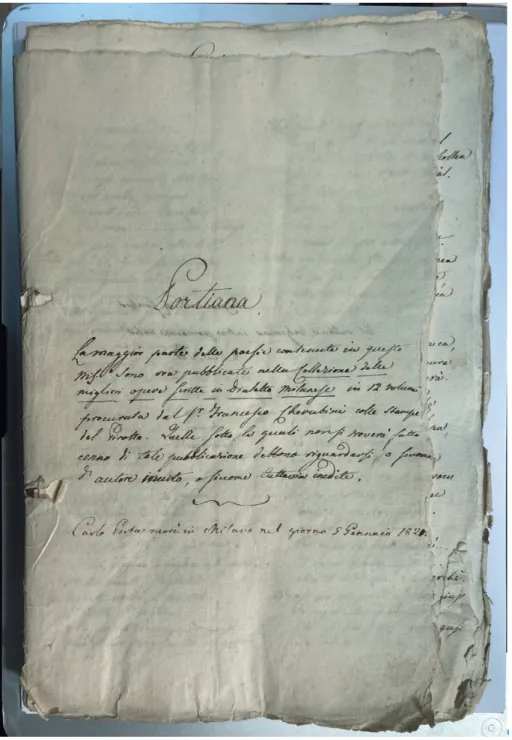 Portiana.
La maggior parte delle poesie contenute in questo
MS. sono ora pubblicate nella Collezione delle
migliori opere scritte in dialetto milanese in 12 volumi
procurata dal Sr. Francesco Cherubini colle stampe
del Pirotta. Quelle sotto le quali non si troverà fatto
cenno di tale pubblicazione debbono riguardarsi, o siccome
di autore incerto, o siccome tuttavia inedite.
Carlo Porta morì in Milano nel giorno 5 Gennaio 1821.